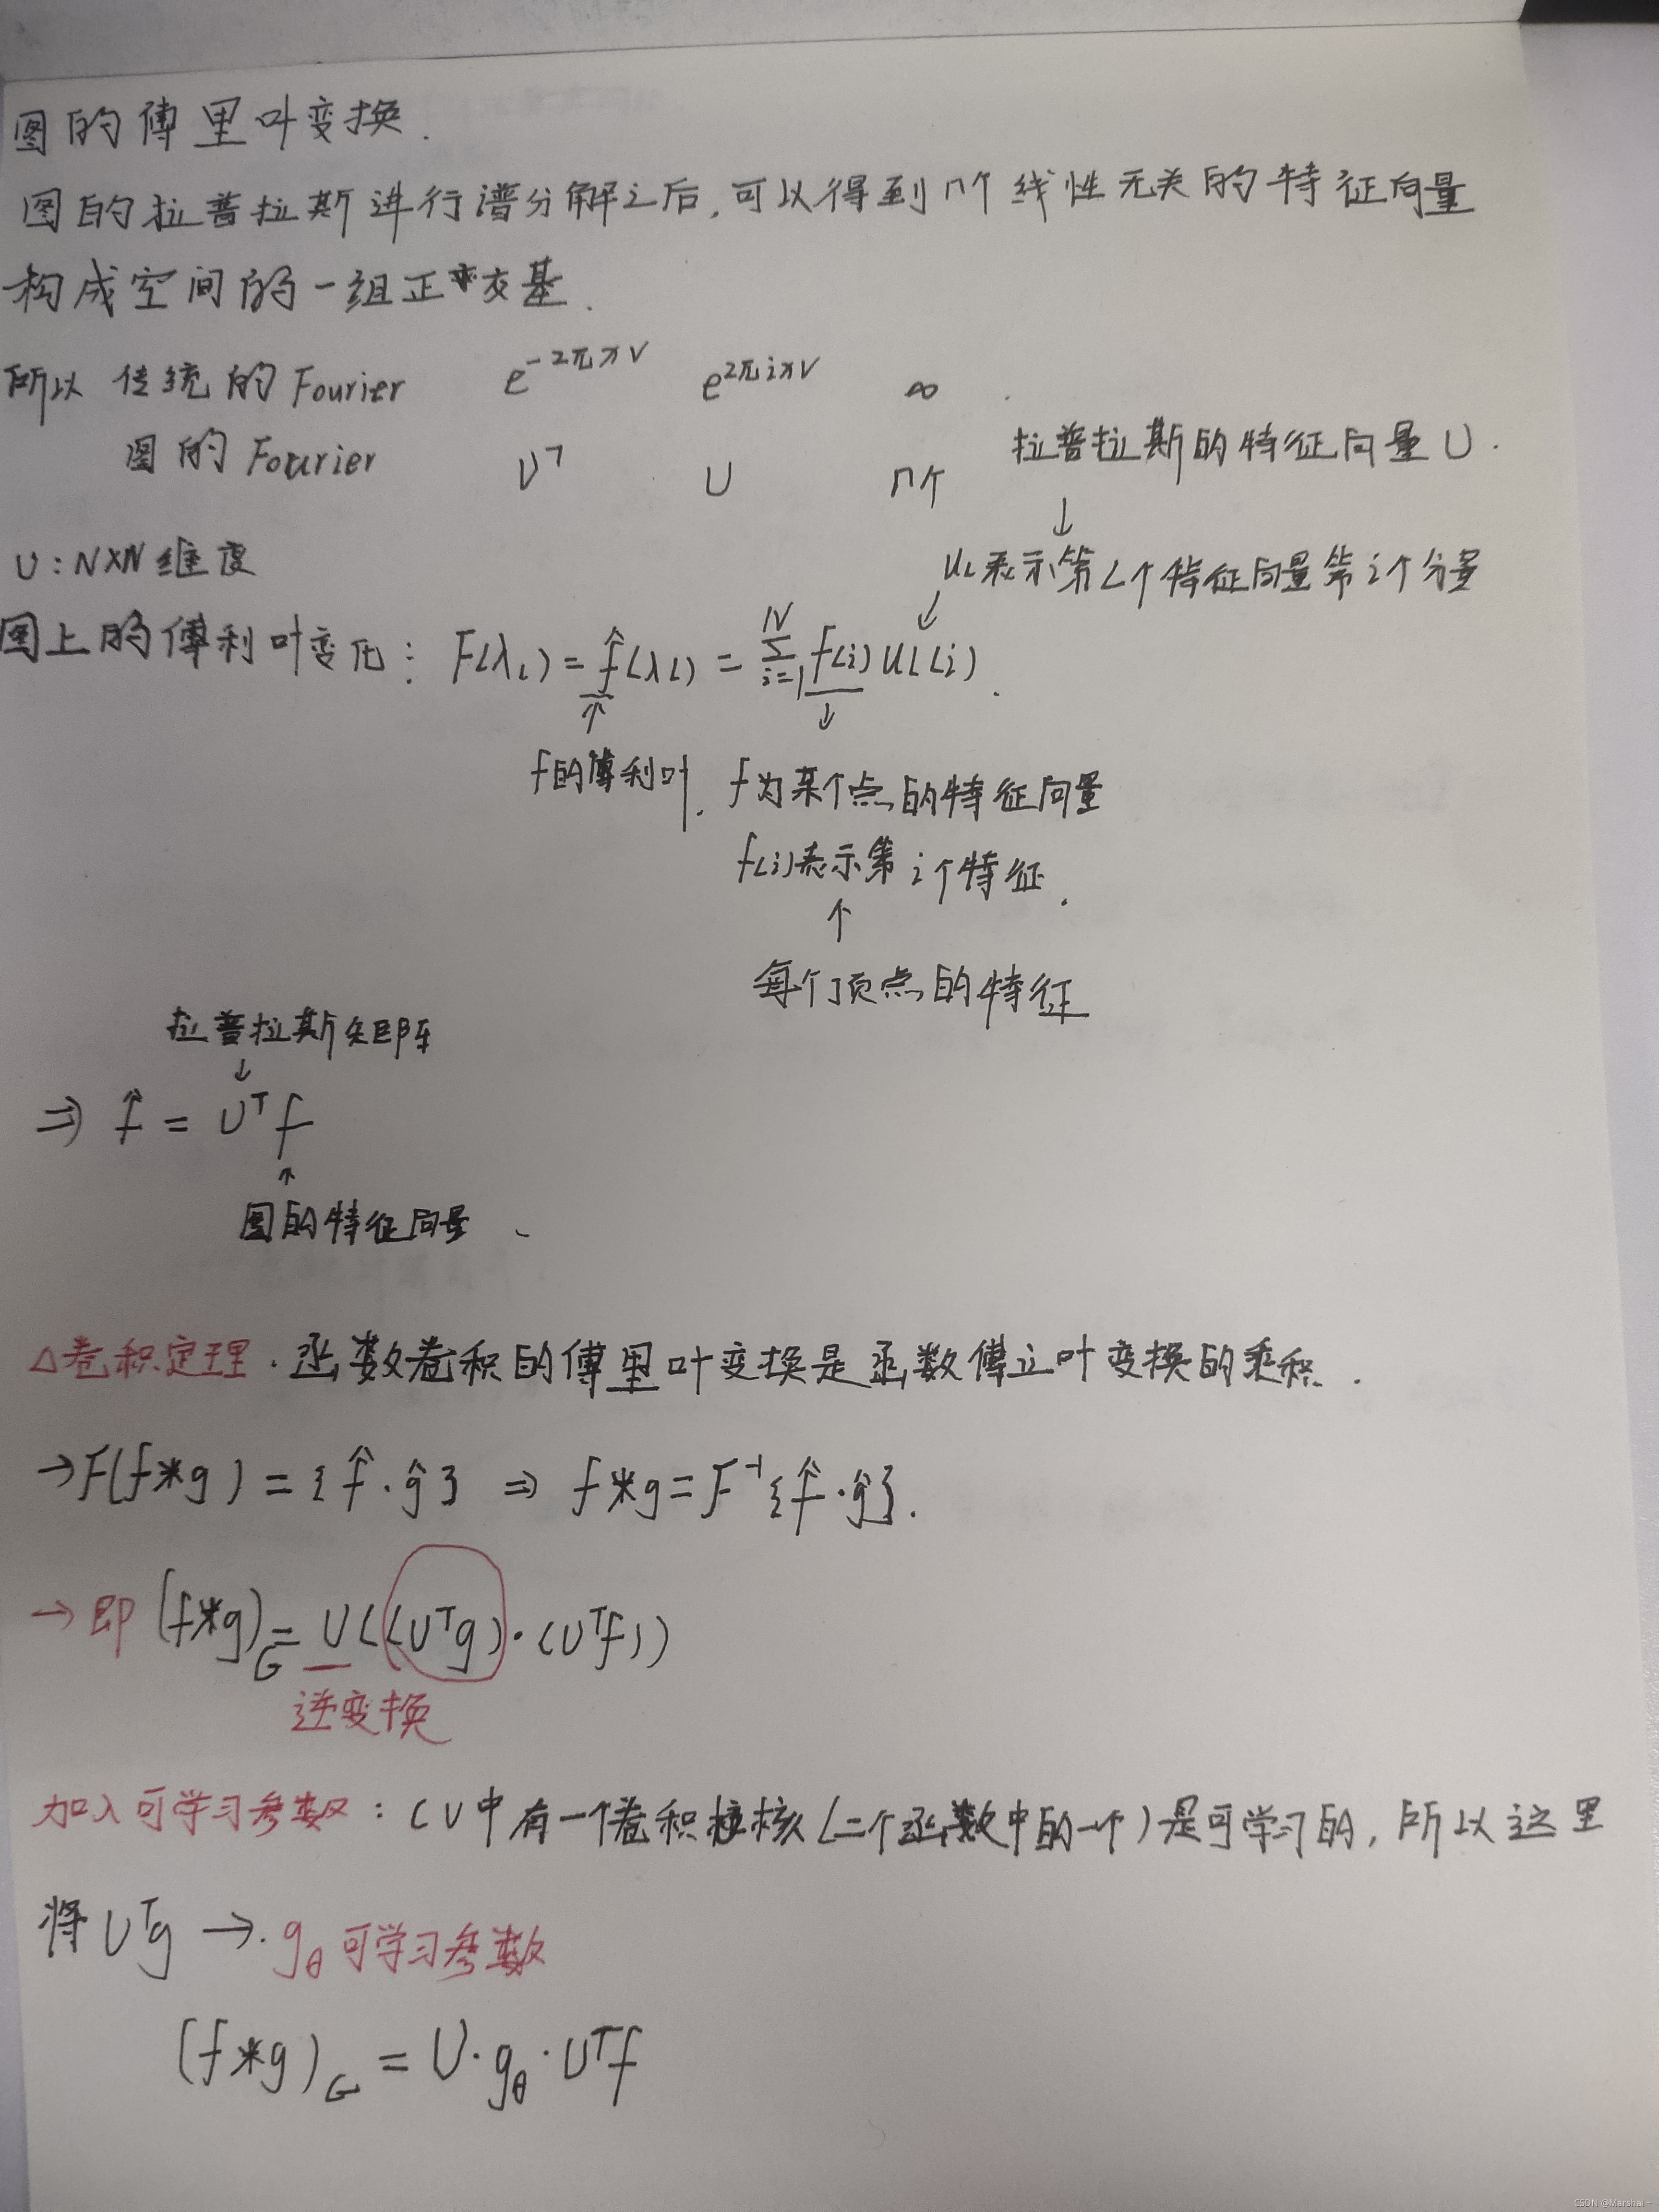 图的傅里叶变换.
图的拉普拉斯进行谱分解之后,可以得到n个线性无关的特征向量
构成空间的一组正交基.
所以 传统的 Fourier e^{-2πxv} e^{2πixv} ∞
图的 Fourier U^T U n个
拉普拉斯的特征向量 U.
↓
U:N×N维度
u_L表示第L个特征向量第i个分量
图上的傅利叶变化: F(λ_L) = f̂(λ_L) = Σ_{i=1}^{N} f(i) u_L(i).
f的傅利叶.
f为某个点的特征向量
f(i)表示第i个特征.
↑
每个顶点的特征
拉普拉斯矩阵
↓
⇒ f̂ = U^T f
↑
图的特征向量
△卷积定理.函数卷积的傅里叶变换是函数傅立叶变换的乘积.
→F(f*g) = {f̂·ĝ} ⇒ f*g = F^{-1}{f̂·ĝ}.
→即 (f*g)_G = U((U^T g)·(U^T f))
逆变换
加入可学习参数:CV中有一个卷积核(二个函数中的一个)是可学习的,所以这里
将 U^T g → g_θ 可学习参数
(f*g)_G = U·g_θ·U^T f
CSDN @Marshal~